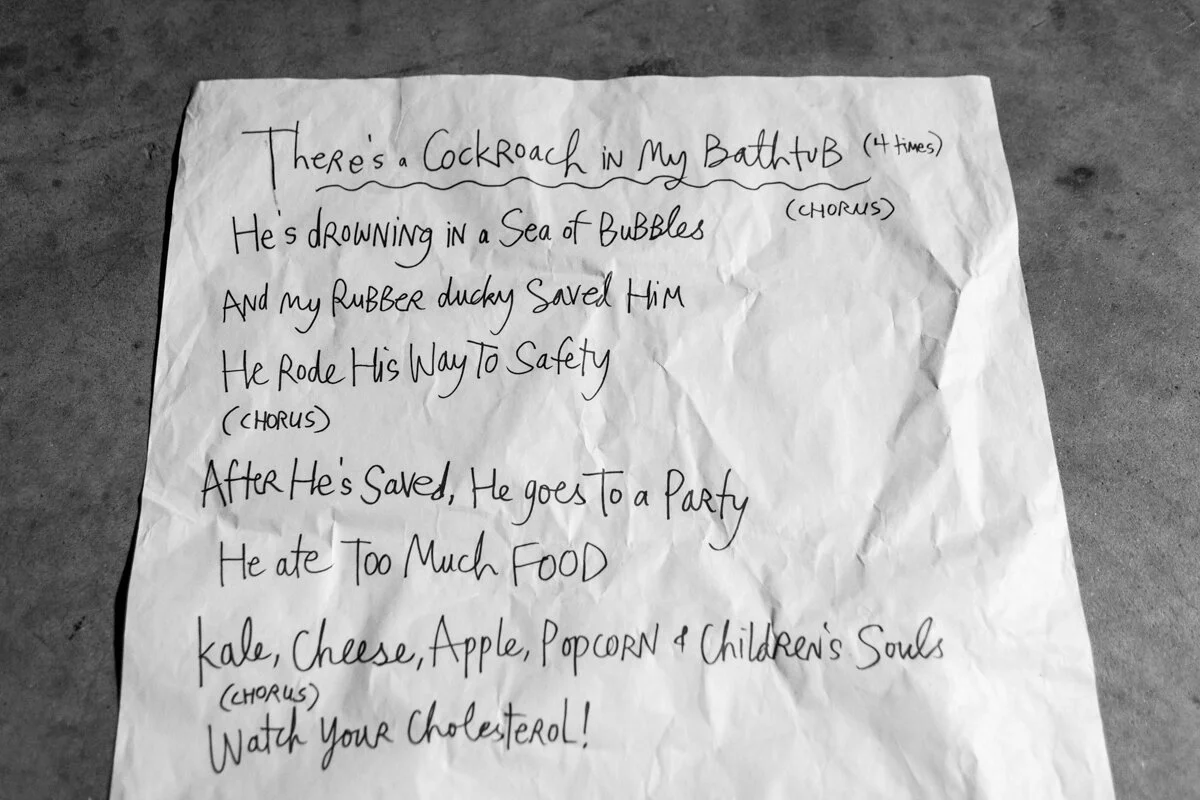 There's a Cockroach in My Bathtub (4 times)
(CHORUS)
He's drowning in a Sea of Bubbles
And my Rubber ducky Saved Him
He Rode His Way To Safety
(CHORUS)
After He's Saved, He goes To a Party
He ate Too Much FOOD
kale, Cheese, Apple, Popcorn & Children's Souls
(CHORUS)
Watch Your Cholesterol!